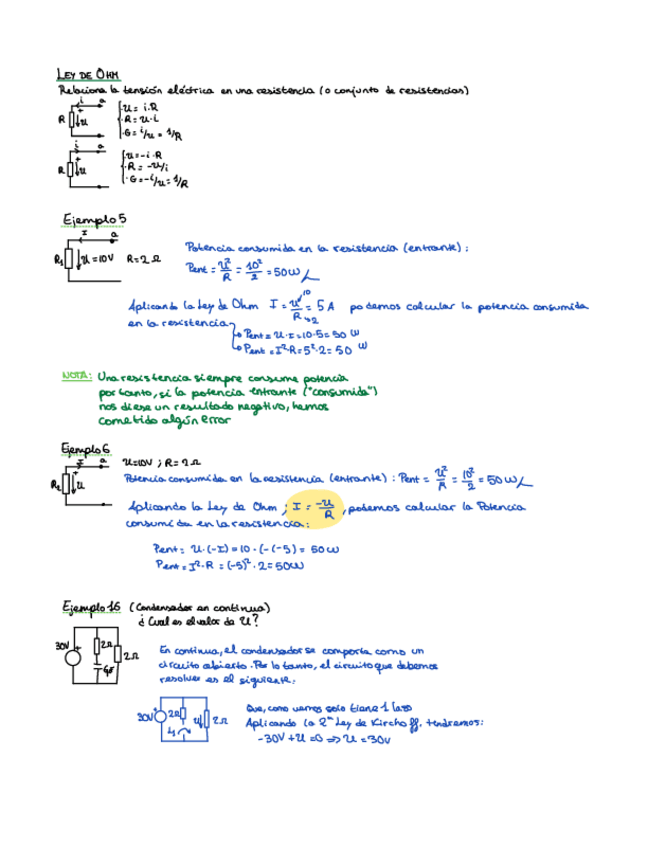 LEY DE OHM
Relaciona la tensión eléctrica en una resistencia (o conjunto de resistencias)
i a
R u
· u = i·R
· R = u·i
· G = i/u = 1/R
i a
R u
· u = -i·R
· R = -u/i
· G = -i/u = 1/R
Ejemplo 5
I a
R1 u = 10V R = 2 Ω
Potencia consumida en la resistencia (entrante):
Pent = u²/R = 10²/2 = 50 W
Aplicando la Ley de Ohm I = u/R = 5 A podemos calcular la potencia consumida
10
2
en la resistencia
Pent = U·I = 10·5 = 50 W
Pent = I²·R = 5²·2 = 50 W
NOTA: Una resistencia siempre consume potencia
por tanto, si la potencia entrante ("consumida")
nos diese un resultado negativo, hemos
cometido algún error
Ejemplo 6
I a
R2 u
U=10V ; R = 2Ω
Potencia consumida en la resistencia (entrante): Pent = u²/R = 10²/2 = 50 W
Aplicando la Ley de Ohm ; I = -u/R , podemos calcular la Potencia
consumida en la resistencia:
Pent = U·(-I) = 10·(-(-5) = 50 W
Pent = I²·R = (-5)²·2 = 50W
Ejemplo 16 (Condensador en continua)
¿Cual es el valor de U?
30V 2Ω 2Ω
En continua, el condensador se comporta como un
circuito abierto. Por lo tanto, el circuito que debemos
resolver es el siguiente:
30V 2Ω u 2Ω
Que, como vemos solo tiene 1 lazo
Aplicando la 2ª Ley de Kirchoff, tendremos:
-30V + U = 0 => U = 30V